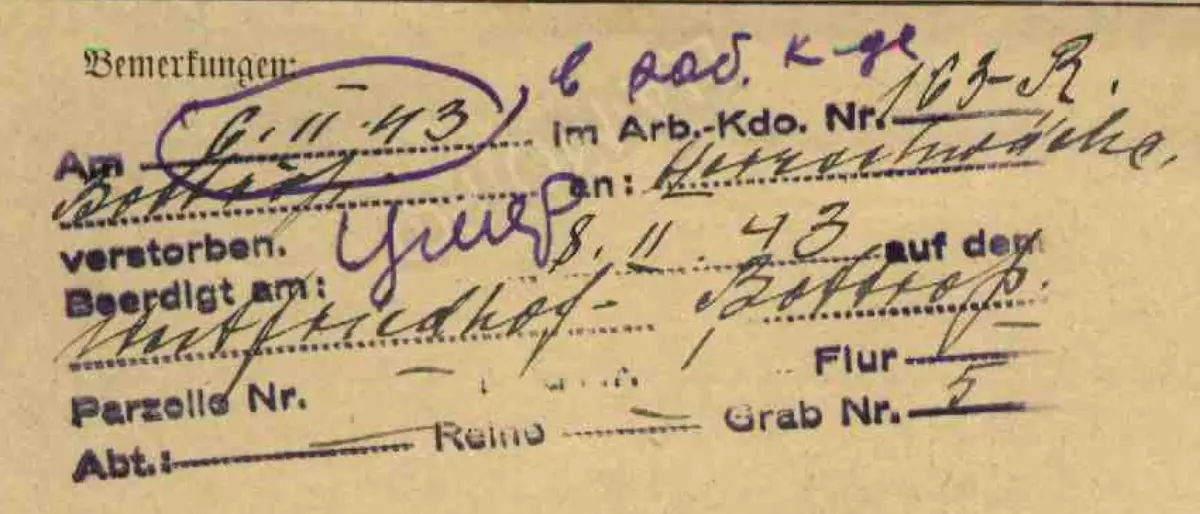 Bemerkungen:
в раб. к-де
Am 6.II.43 im Arb.-Kdo. Nr. 163-R.
Bottrop an: Herzschwäche.
verstorben. Умер
Beerdigt am: 8.II.43 auf dem
Westfriedhof - Bottrop.
Parzelle Nr. — Flur —
Abt.: — Reihe — Grab Nr. 5